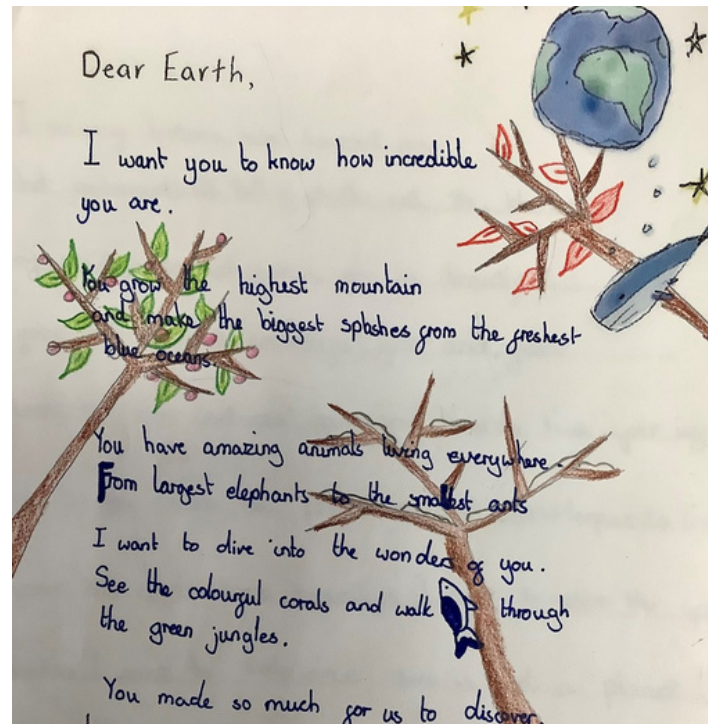 Dear Earth,
I want you to know how incredible
you are.
You grow the highest mountain
and make the biggest splshes from the freshest
blue oceans.
You have amazing animals living everywhere.
From largest elephants to the smallest ants
I want to dive into the wonders of you.
See the colourful corals and walk through
the green jungles.
You made so much for us to discover